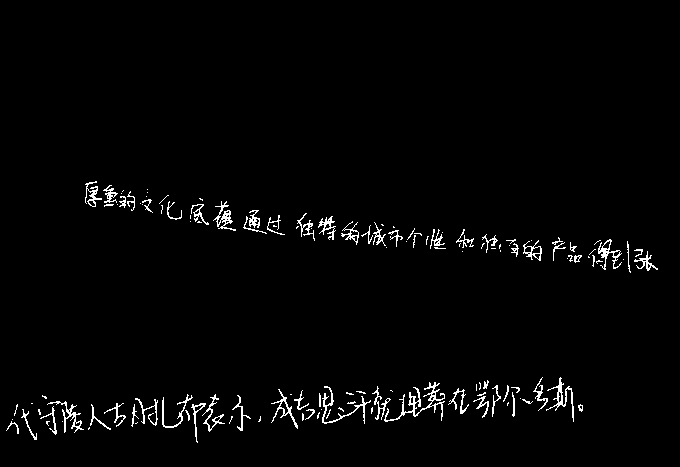 厚重的文化底蕴通过独特的城市个性和独有的产品得到张
代守陵人古日扎布表示,成吉思汗就埋葬在鄂尔多斯。